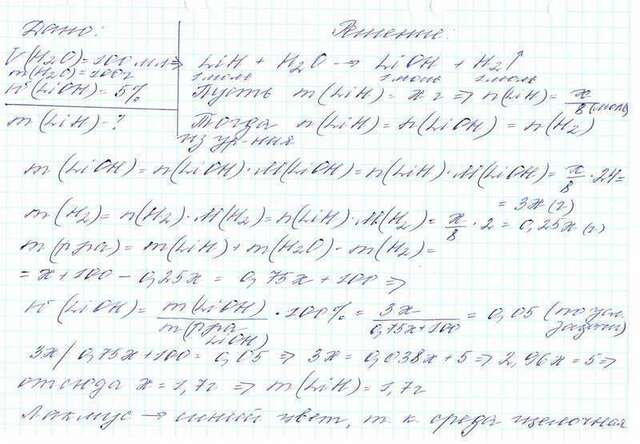 Дано: Решение:
V(H₂O) = 100 мл ⇒
m(H₂O) = 100г
W(LiOH) = 5%
m(LiH) - ?
LiH + H₂O → LiOH + H₂↑
1 моль 1 моль 1 моль
Пусть m(LiH) = x г ⇒ n(LiH) = x/8 (моль)
Тогда n(LiH) = n(LiOH) = n(H₂)
из ур-ния
m(LiOH) = n(LiOH)·M(LiOH) = n(LiH)·M(LiOH) = x/8 · 24 =
= 3x (г)
m(H₂) = n(H₂)·M(H₂) = n(LiH)·M(H₂) = x/8 · 2 = 0,25x (г)
m(р-ра) = m(LiH) + m(H₂O) - m(H₂) =
= x + 100 - 0,25x = 0,75x + 100 ⇒
W(LiOH) = m(LiOH)/m(р-ра LiOH) · 100% = 3x/0,75x+100 = 0,05 (по усл. задачи)
3x/0,75x+100 = 0,05 ⇒ 3x = 0,038x + 5 ⇒ 2,96x = 5 ⇒
отсюда x = 1,7г ⇒ m(LiH) = 1,7г
Лакмус → синий цвет, т.к. среда щелочная